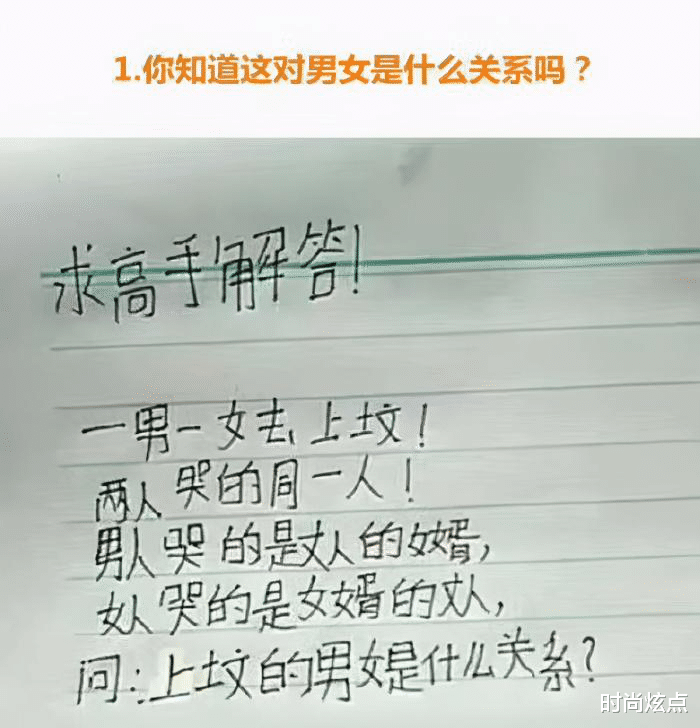 1.你知道这对男女是什么关系吗？
求高手解答！
一男一女去上坟！
两人哭的同一人！
男人哭的是丈人的女婿，
女人哭的是女婿的丈人，
问：上坟的男女是什么关系？
时尚炫点